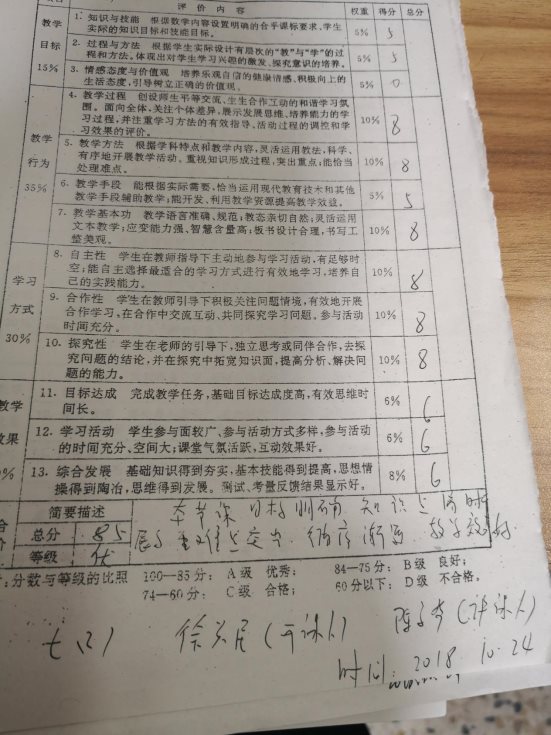 评 价 内 容 权重 得分 总分
教学目标 15%
1. 知识与技能 根据数学内容设置明确的合乎课标要求、学生
实际的知识目标和技能目标。 5% 5
2. 过程与方法 根据学生实际设计有层次的“教”与“学”的过
程和方法。体现出对学生学习兴趣的激发、探究意识的培养。 5% 5
3. 情感态度与价值观 培养乐观自信的健康情感、积极向上的
生活态度，引导树立正确的价值观。 5%
教学行为 35%
4. 教学过程 创设师生平等交流、生生合作互动的和谐学习氛
围。面向全体，关注个体差异，展示发展思维、培养能力的学
习过程，并注重学习方法的有效指导、活动过程的调控和学
习效果的评价。 10% 8
5. 教学方法 根据学科特点和教学内容，灵活运用教法，科学、
有序地开展教学活动。重视知识形成过程，突出重点；能恰当
处理难点。 10% 8
6. 教学手段 能根据实际需要，恰当运用现代教育技术和其他
教学手段辅助教学；能开发、利用教学资源提高教学效益。 5% 5
7. 教学基本功 教学语言准确、规范；教态亲切自然；灵活运用
文本教学；应变能力强、智慧含量高；板书设计合理，书写工
整美观。 10% 8
学习方式 30%
8. 自主性 学生在教师指导下主动地参与学习活动，有足够时
空；能自主选择最适合的学习方式进行有效地学习，培养自
己的实践能力。 10% 8
9. 合作性 学生在教师引导下积极关注问题情境，有效地开展
合作学习。在合作中交流互动、共同探究学习问题。参与活动
时间充分。 10% 8
10. 探究性 学生在老师的引导下，独立思考或同伴合作，去探
究问题的结论，并在探究中拓宽知识面，提高分析、解决问
题的能力。 10% 8
教学效果
11. 目标达成 完成教学任务，基础目标达成度高，有效思维时
间长。 6% 6
12. 学习活动 学生参与面较广、参与活动方式多样，参与活动
的时间充分、空间大；课堂气氛活跃，互动效果好。 6% 6
13. 综合发展 基础知识得到夯实，基本技能得到提高，思想情
操得到陶冶，思维得到发展。测试、考量反馈结果显示好。 8% 6
简要描述 本节课目标明确 知识
总分 85 重难点突出 循序渐进 教学效果好
等级 优
：分数与等级的比照 100—85分： A级 优秀； 84—75分： B级 良好；
74—60分： C级 合格； 60分以下： D级 不合格。
七(2) (评课人)
时间： 2018. 10. 24